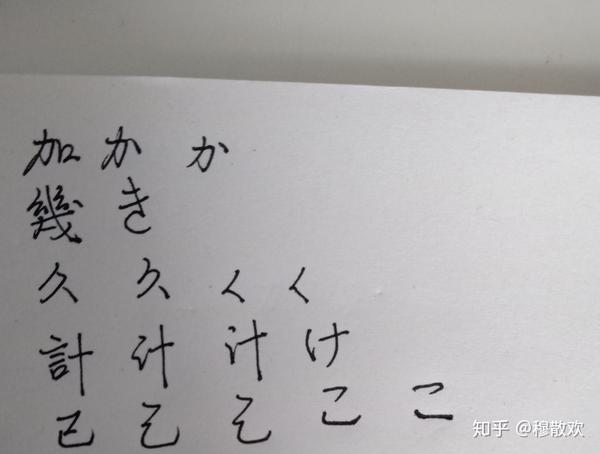 加 か か
幾 き
久 久 く く
計 计 汁 け
己 己 己 こ こ
知乎 @穆散欢